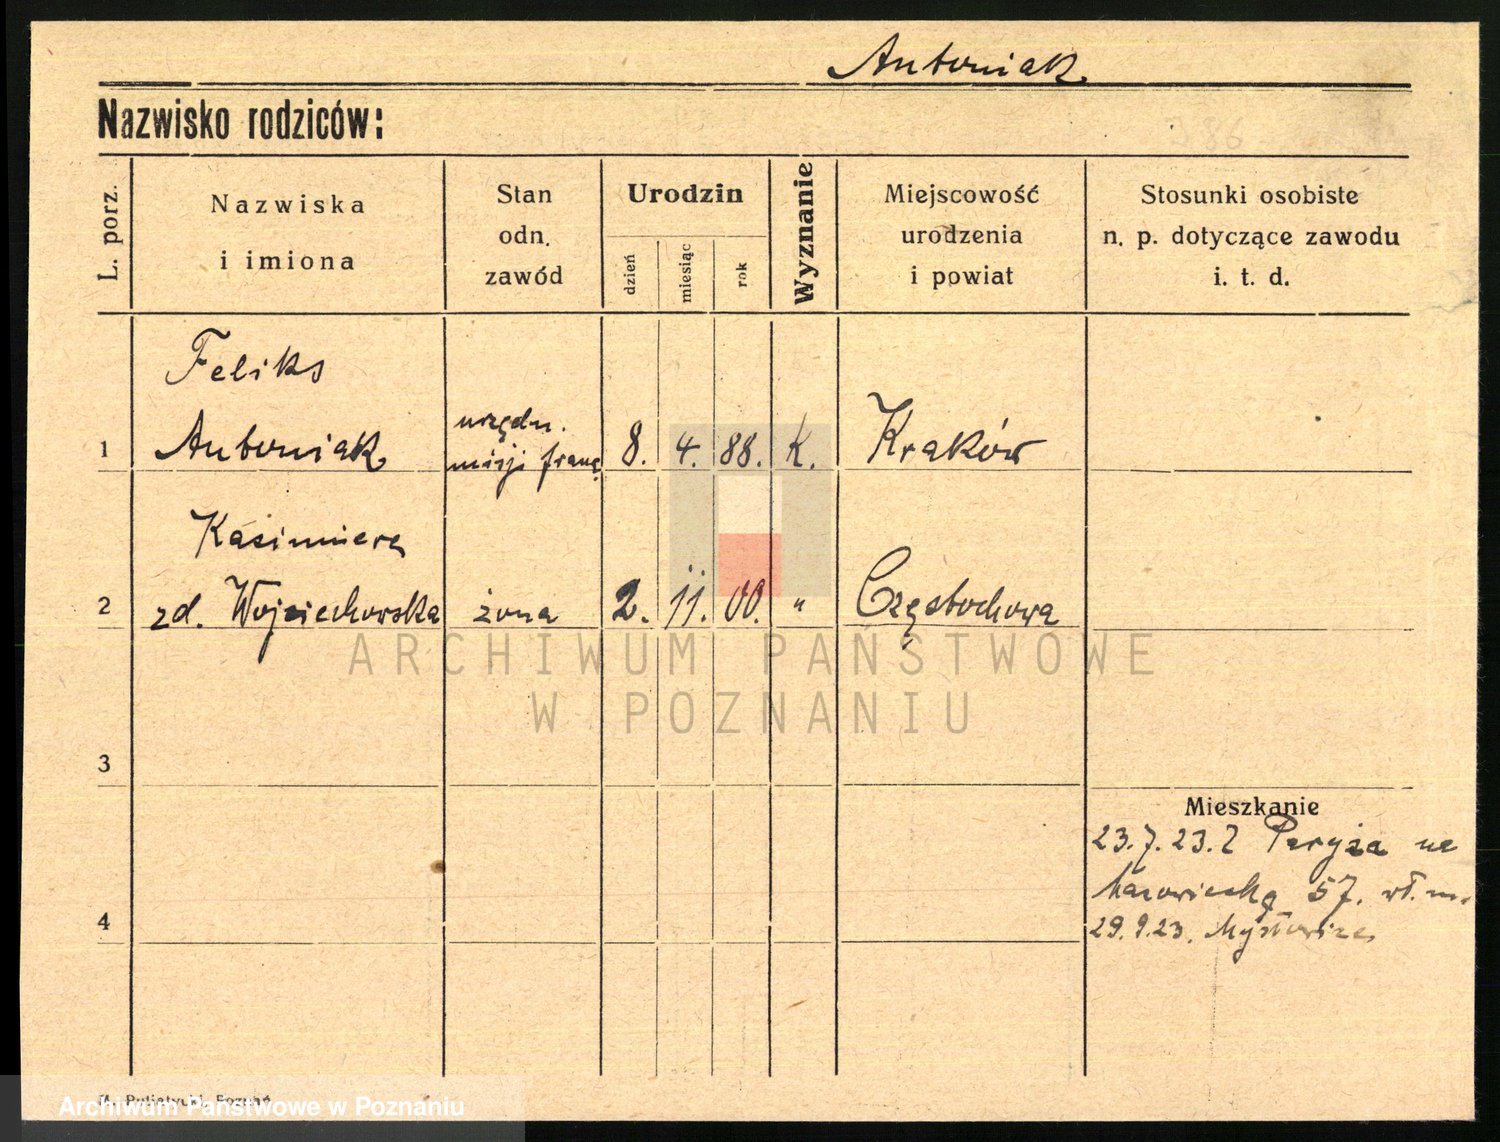 Antoniak
Nazwisko rodziców:
386
L. porz.
Nazwiska
i imiona
Stan
odn.
zawód
Urodzin
dzień
miesiąc
rok
Wyznanie
Miejscowość
urodzenia
i powiat
Stosunki osobiste
n. p. dotyczące zawodu
i. t. d.
1
Feliks
Antoniak
urzędn.
misji franc
8. 4. 88. K. Kraków
2
Kazimiera
zd. Wojciechowska żona 2. 11. 00. " Częstochowa
3
Mieszkanie
23.7.23. Z Paryża na
Mazowiecką 57. wł. m.
4
29.9.23. Mysłowice
ARCHIWUM PAŃSTWOWE
W POZNANIU
M. Putiatycki, Poznań
Archiwum Państwowe w Poznaniu